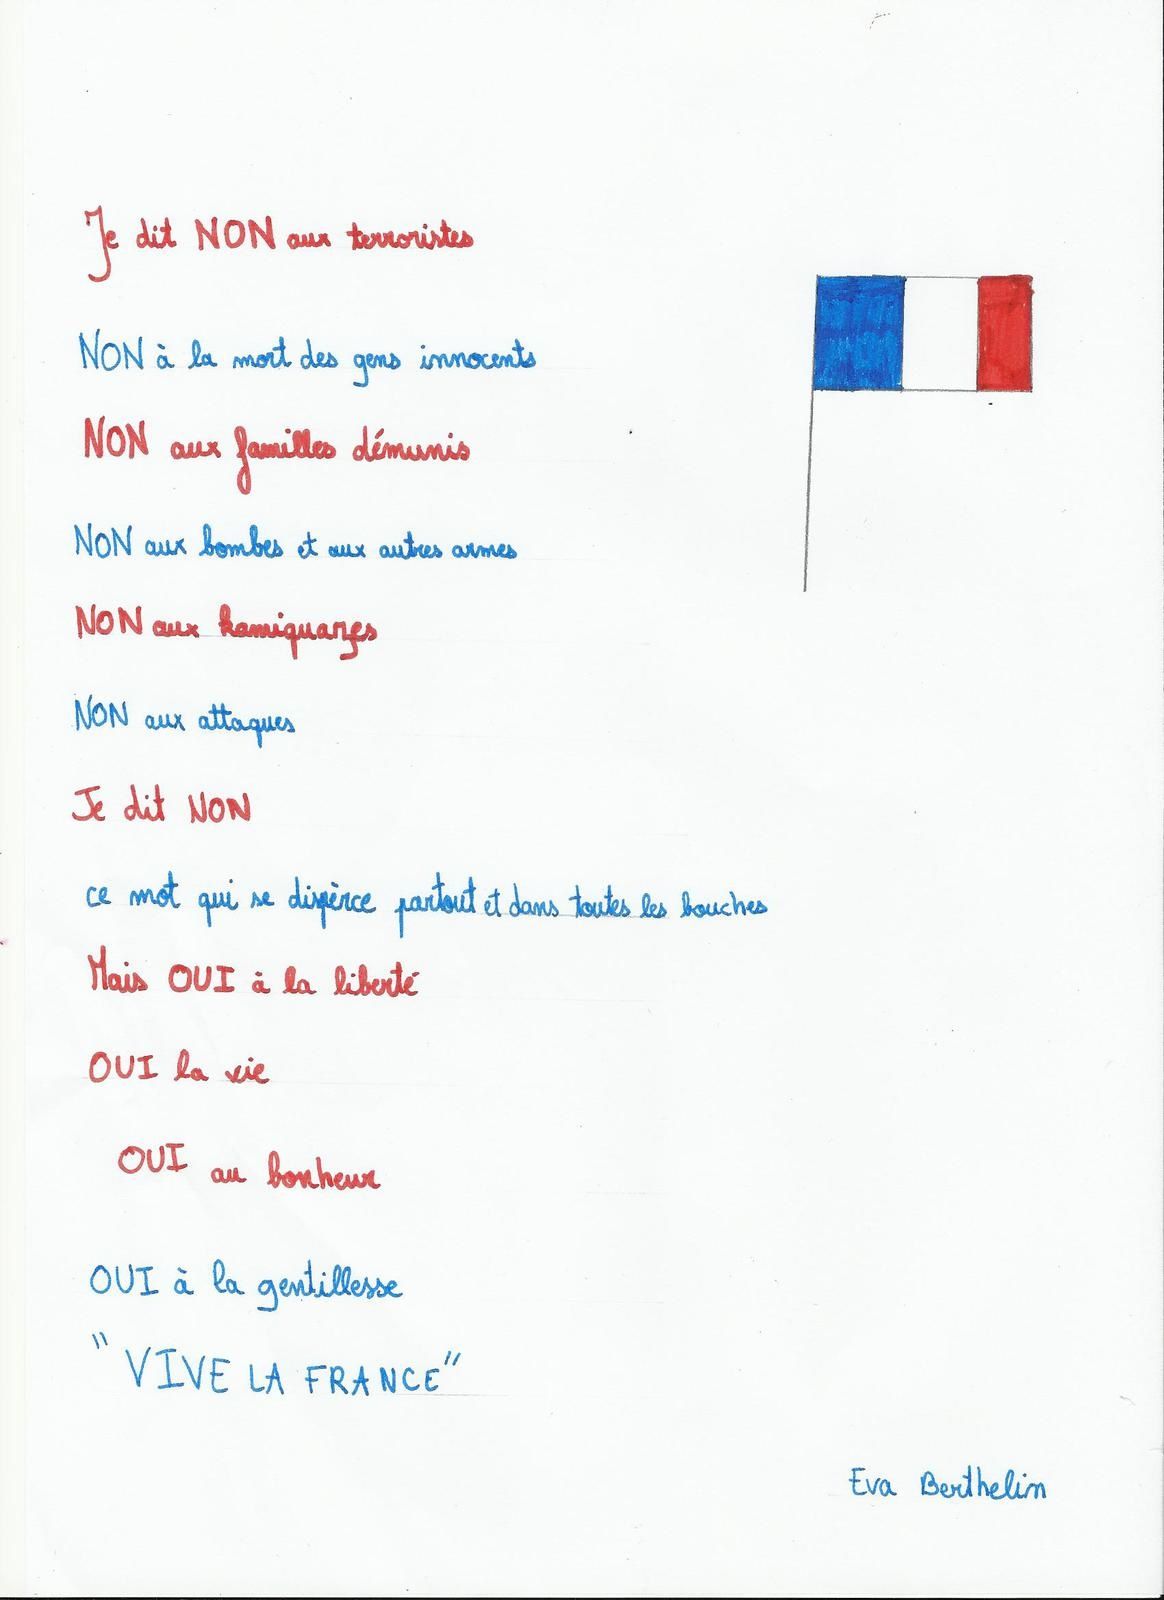 Je dit NON aux terroristes
NON à la mort des gens innocents
NON aux familles démunis
NON aux bombes et aux autres armes
NON aux kamiquazes
NON aux attaques
Je dit NON
ce mot qui se dispèrce partout et dans toutes les bouches
Mais OUI à la liberté
OUI la vie
OUI au bonheur
OUI à la gentillesse
"VIVE LA FRANCE"
Eva Berthelin